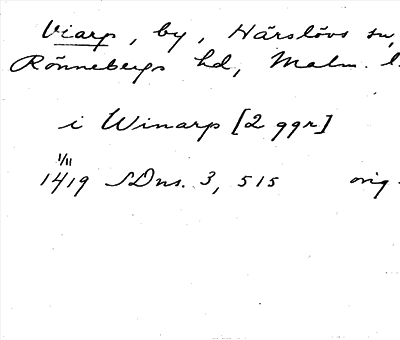 Viarp, by, Härslövs sn,
Rönnebergs hd, Malm. l.
i Winarp [2 ggr]
1/11
1419 SDns. 3, 515 orig.